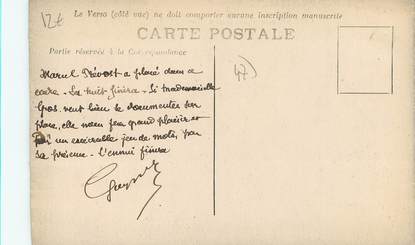 12€
Le Verso (côté vue) ne doit comporter aucune inscription manuscrite
CARTE POSTALE
Partie réservée à la Correspondance
47)
Marcel Prévost a placé dans ce
cadre - La nuit finira - Si Mademoiselle
Gros veut bien se documenter sur
place, elle nous fera grand plaisir et
un exécrable jeu de mots, par
sa présence - l'ennui finira